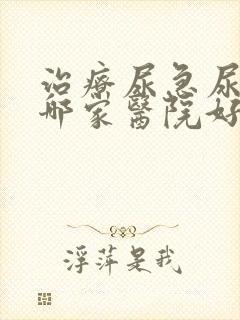 治療尿急尿
哪家醫院好
浮萍是我